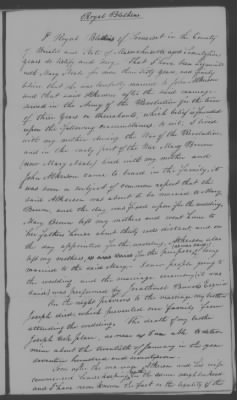 Royal Blethen
I Royal Blethen of Somerset in the County
of Bristol and State of Massachusetts aged seventy five
years do testify and say. That I have been acquainted
with Mary Neale for more than sixty years, and firmly
believe that she was lawfully married to John Atkerson
and that said Atkerson after the said marriage
served in the Army of the Revolution for the term
of three years or thereabouts, which belief is founded
upon the following circumstances to wit, I lived
with my mother during the War of the Revolution
and in the early part of the War Mary Brown
(now Mary Neale) lived with my mother and
John Atkerson came to board in the family, it
was soon a subject of common report that the
said Atkerson was about to be married to Mary
Brown, and the day was fixed upon for the wedding,
Mary Brown left my mothers and went home to
her fathers house about
distant and on
the day appointed for the wedding, Atkerson also
left my mothers, as was said for the purpose of being
married to the said Mary. Some people going to
the wedding and the marriage ceremony (it was
said) was performed by Jonathan Bowers Esquire
On the night previous to the marriage my brother
Joseph died, which prevented our family from
attending the wedding. The death of my brother
Joseph took place, as near as I can
mine about the twentieth of January in the year
seventeen hundred and seventy
Soon after the marriage Atkerson and his wife
commenced housekeeping in the same neighborhood
and I have never known the fact or the legality of the